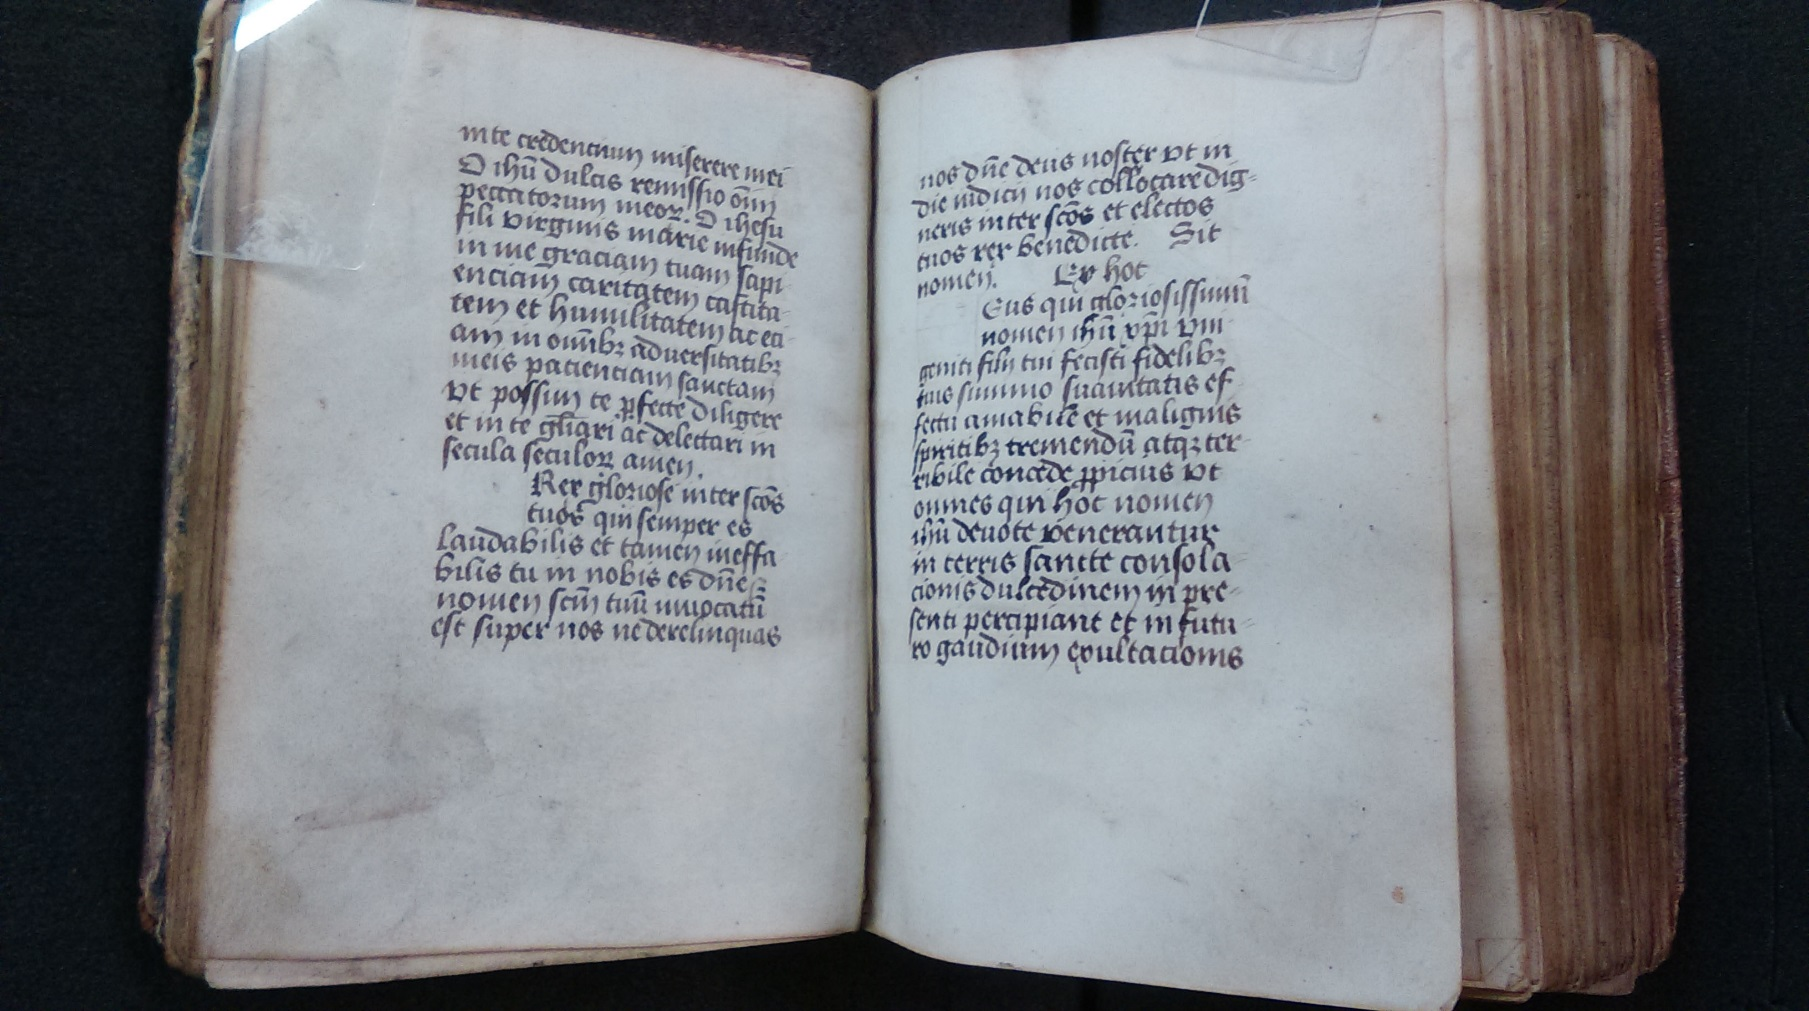 in te credencium miserere mei
O ihū dulcis remissio oīm
peccatorum meoꝝ. O ihesu
fili virginis marie infunde
in me graciam tuam sapi
enciam caritatem castita-
tem et humilitatem ac eci-
am in omībꝫ aduersitatibꝫ
meis pacienciam sanctam
vt possim te ꝑfecte diligere
et in te gl̄iari ac delectari in
secula seculoꝝ amen.
Rex gloriose inter scōs
tuos qui semper es
laudabilis et tamen ineffa
bilis tu in nobis es dn̄e ⁊
nomen scm̄ tuū inuocatū
est super nos ne derelinquas
nos dn̄e deus noster vt in
die iudicij nos collocare dig-
neris inter scōs et electos
tuos rex benedicte. Sit
nomen. Ex hoc
Eus qui gloriosissimū
nomen ihū xp̄i vni-
geniti filij tui fecisti fidelibꝫ
tuis summo suauitatis ef-
fectu amabile et malignis
spiritibꝫ tremendū atqꝫ ter-
ribile concede ꝓpicius vt
omnes qui hoc nomen
ihū deuote venerantur
in terris sancte consola-
cionis dulcedinem in pre-
senti percipiant et in futu-
ro gaudium exultacionis